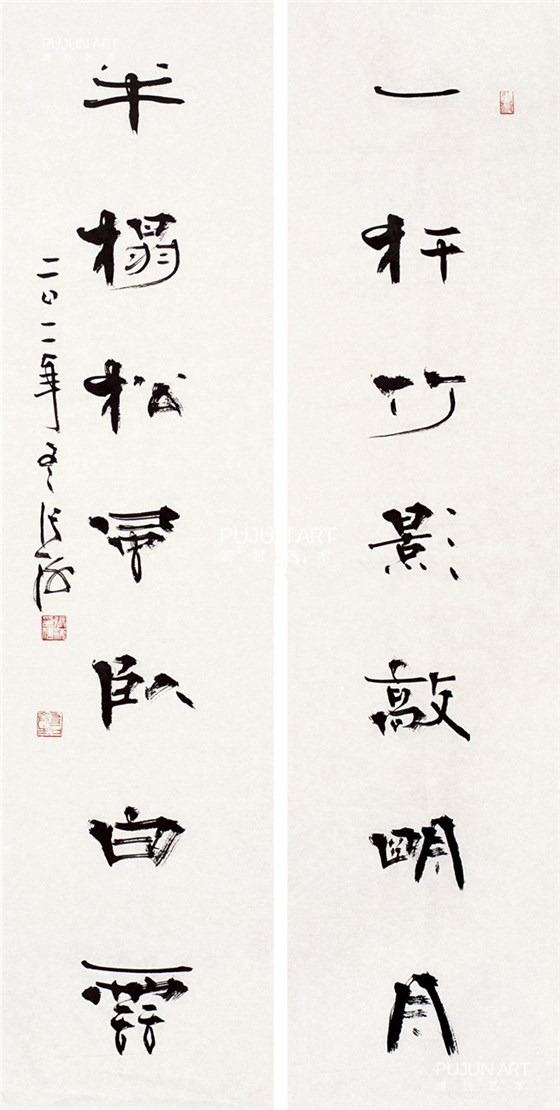 一杆竹影敲明月
半榻松風臥白雲
PUJUN ART
PUJUN ART
PUJUN ART